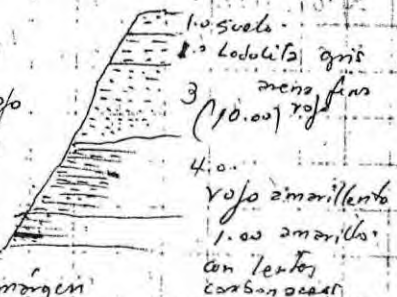 1.0 suelo.
1.0 Lodolita gris
3 arena fina
(10.00) rojo
4.0.
rojo amarillento
1.00 amarillo.
con lentes
carbonaceos
márgen